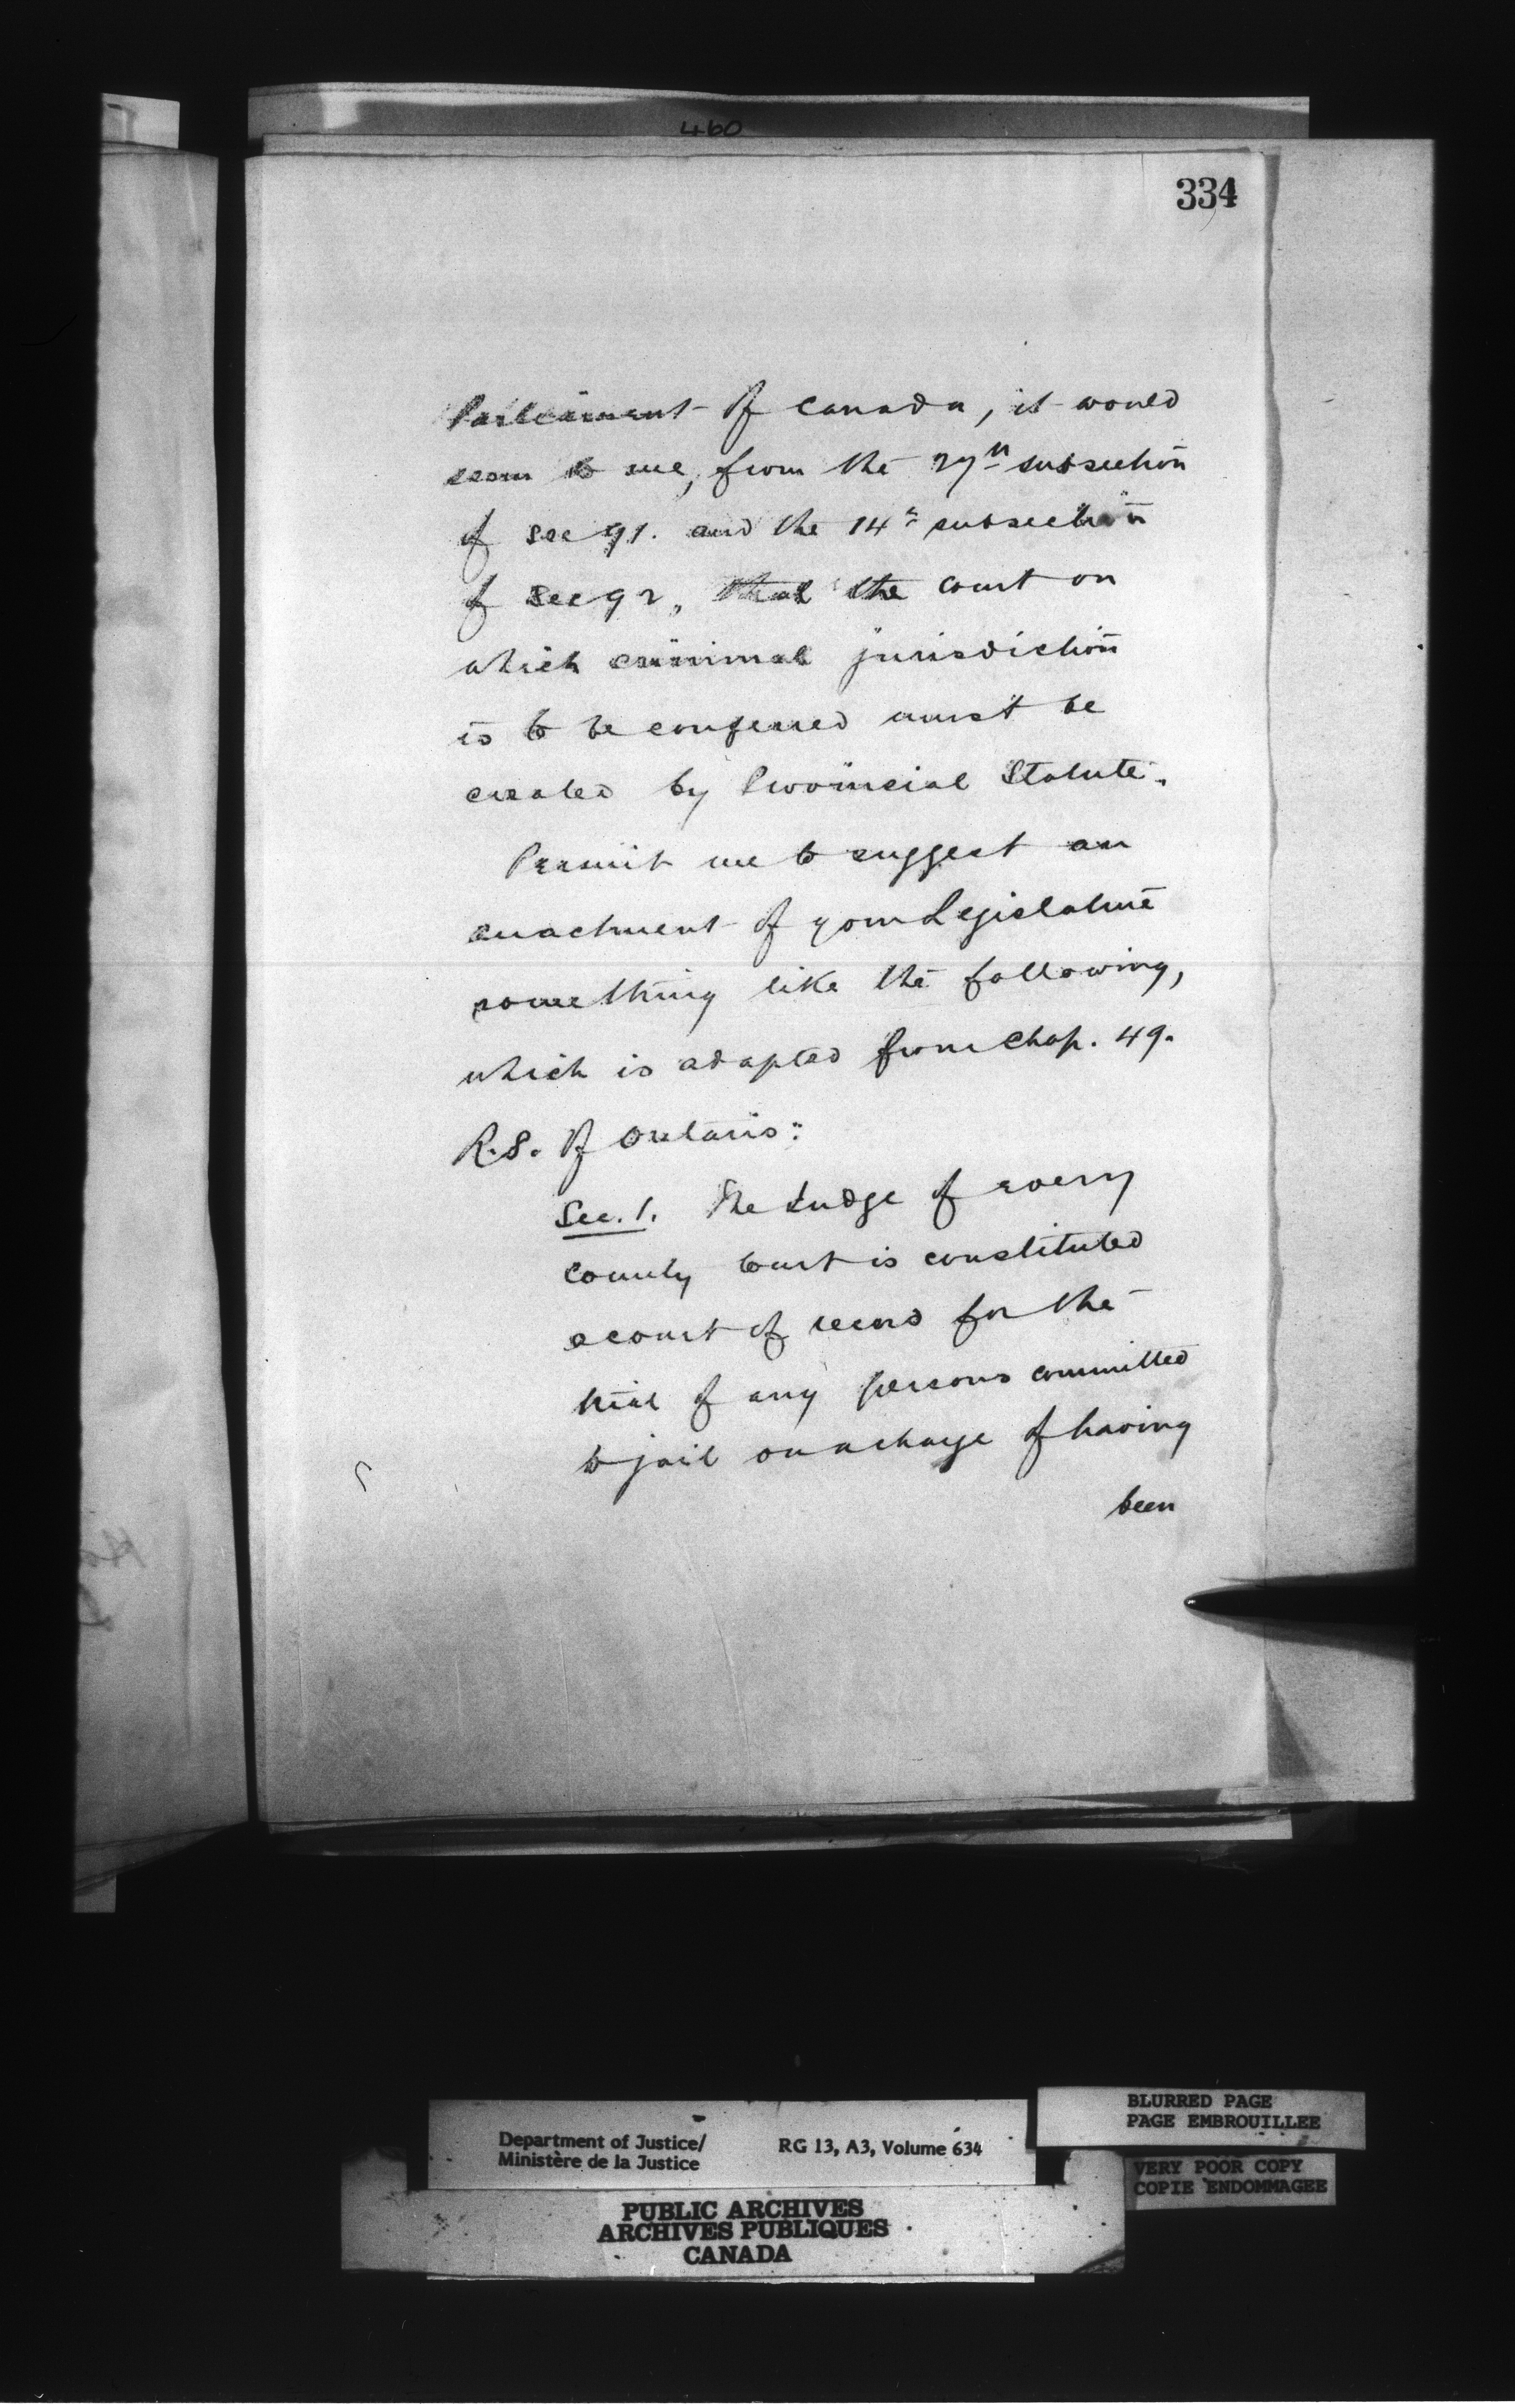 460
334
Parliament of Canada, it would
seem to me, from the 27th subsection
of Sec 91. and the 14th subsection
of Sec 92, that the court on
which criminal jurisdiction
is to be conferred must be
created by Provincial Statute.
Permit me to suggest an
enactment of your Legislature
something like the following,
which is adapted from Chap. 49.
R.S. of Ontario:
Sec. 1. The Judge of every
County Court is constituted
a court of record for the
trial of any persons committed
to jail on a charge of having
been
BLURRED PAGE
PAGE EMBROUILLEE
Department of Justice/ RG 13, A3, Volume 634
Ministère de la Justice
VERY POOR COPY
COPIE ENDOMMAGEE
PUBLIC ARCHIVES
ARCHIVES PUBLIQUES
CANADA